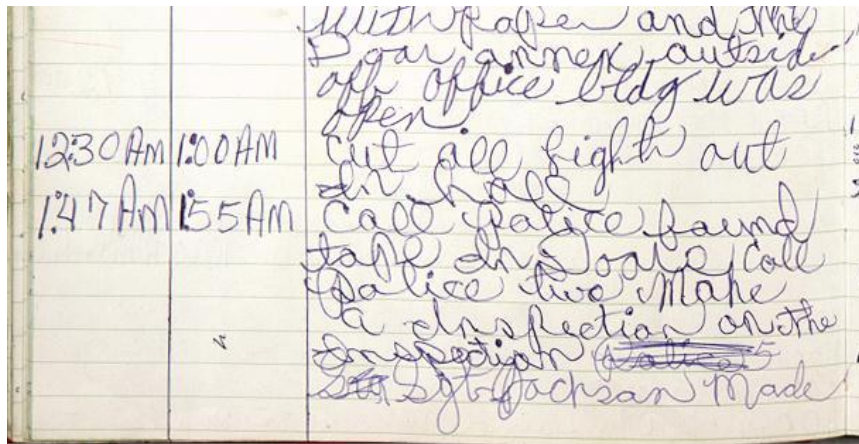 with paper and the
Door annex outside
off office bldg was
open
12:30 AM 1:00 AM Cut all light out
In hall
1:47 AM 1:55 AM Call police found
tape In Doore Call
police two Make
a Inspection on the
Inspection
Sgt Jackson Made